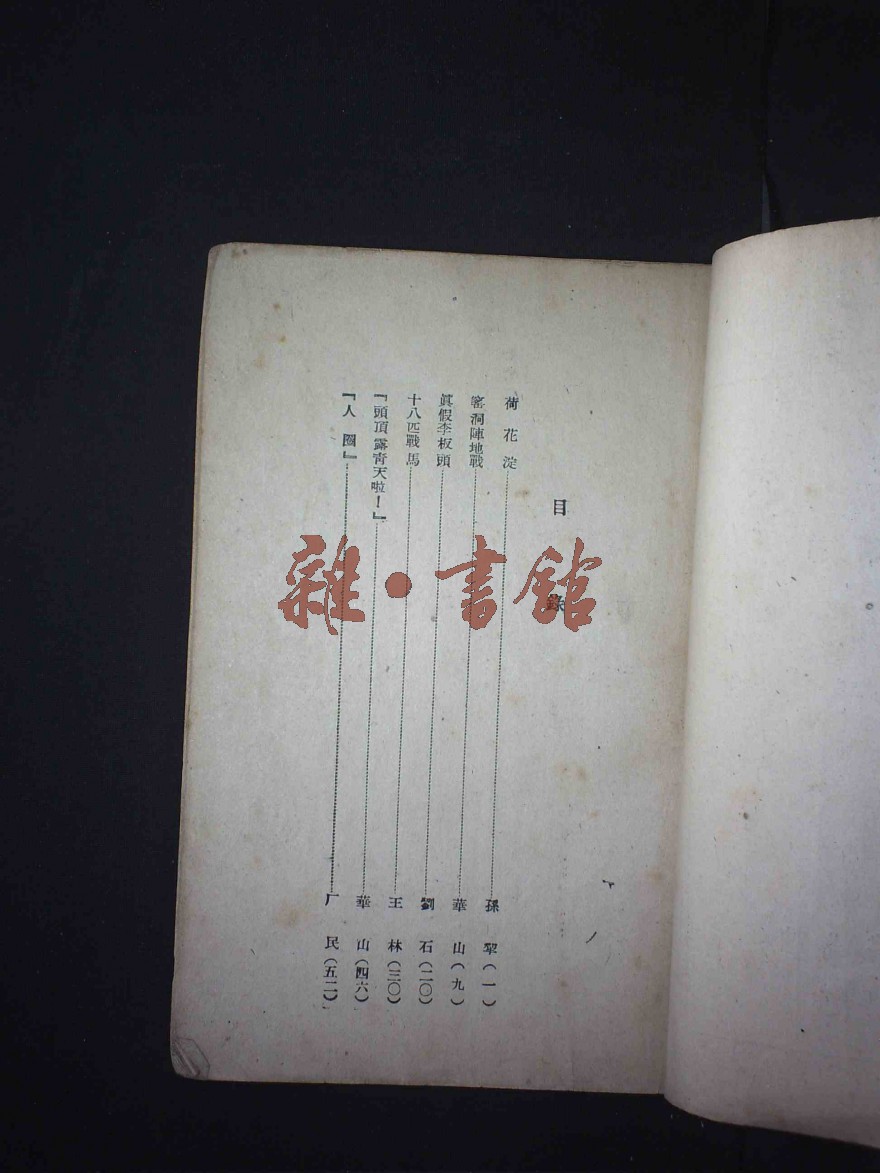 目錄
荷花淀 孫犂(一)
窰洞陣地戰 華山(九)
眞假李板頭 劉石(二〇)
十八匹戰馬 王林(三〇)
『頭頂露靑天啦！』 華山(四六)
『人圈』 厂民(五二)
雜·書館